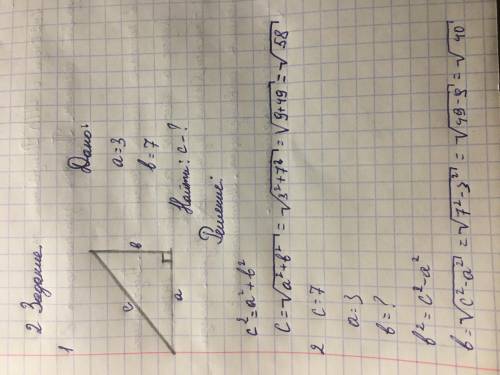 2 Задание.
1
Дано:
a=3
b=7
c
b
a
Найти: c-?
Решение:
c²=a²+b²
c=√a²+b²=√3²+7²=√9+49=√58
2 c=7
a=3
b=?
b²=c²-a²
b=√c²-a²=√7²-3²=√49-9=√40